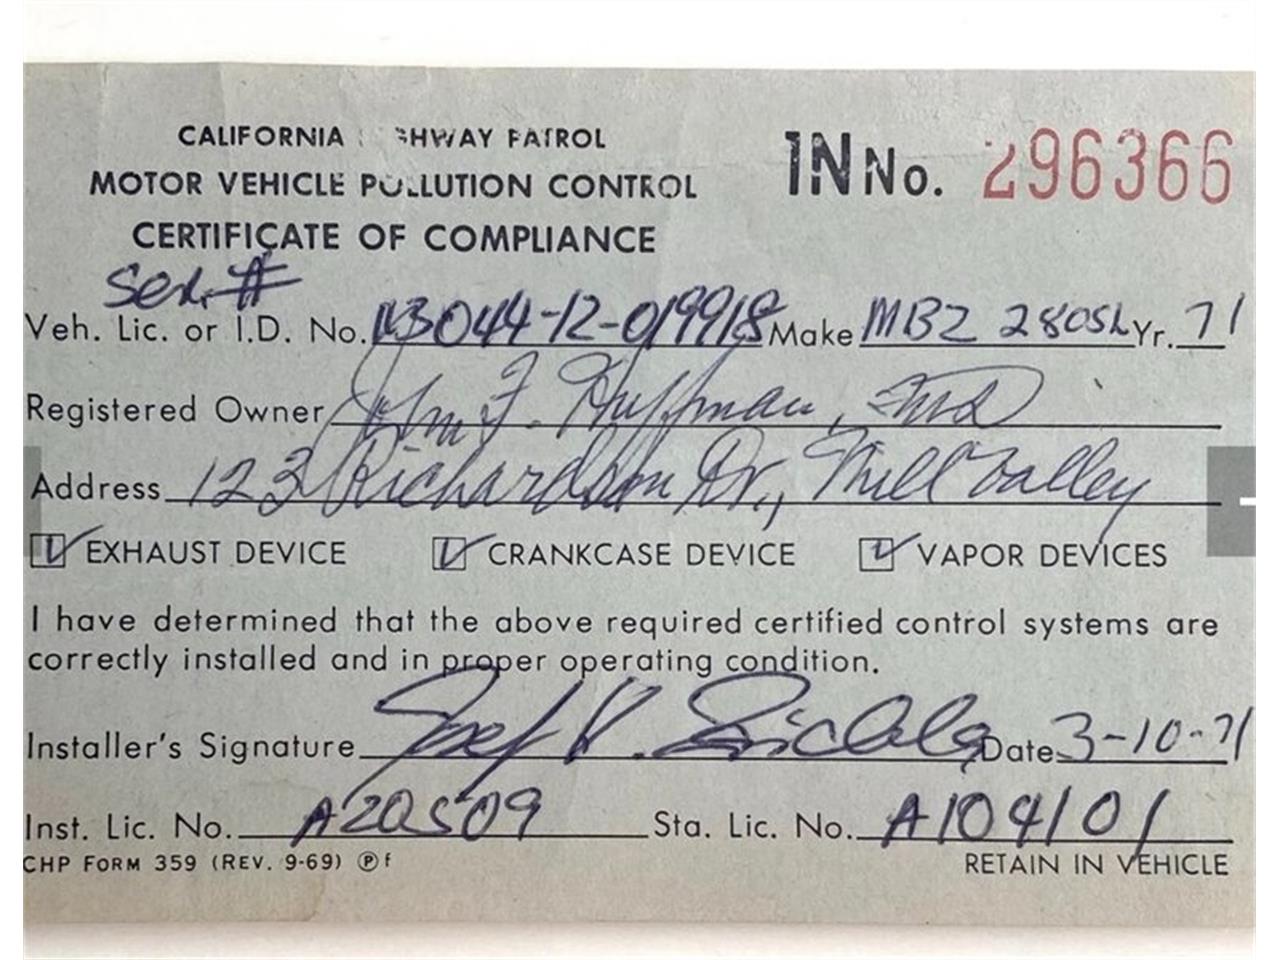 CALIFORNIA HIGHWAY PATROL
MOTOR VEHICLE POLLUTION CONTROL
CERTIFICATE OF COMPLIANCE
1N No. 296366
Ser. #
Veh. Lic. or I.D. No. 113044-12-019918 Make MBZ 280SL Yr. 71
Registered Owner John F. Huffman, MD
Address 123 Richardson Dr., Mill Valley
EXHAUST DEVICE CRANKCASE DEVICE VAPOR DEVICES
I have determined that the above required certified control systems are
correctly installed and in proper operating condition.
Installer's Signature Date 3-10-71
Inst. Lic. No. A20509 Sta. Lic. No. A104101
CHP FORM 359 (REV. 9-69) RETAIN IN VEHICLE